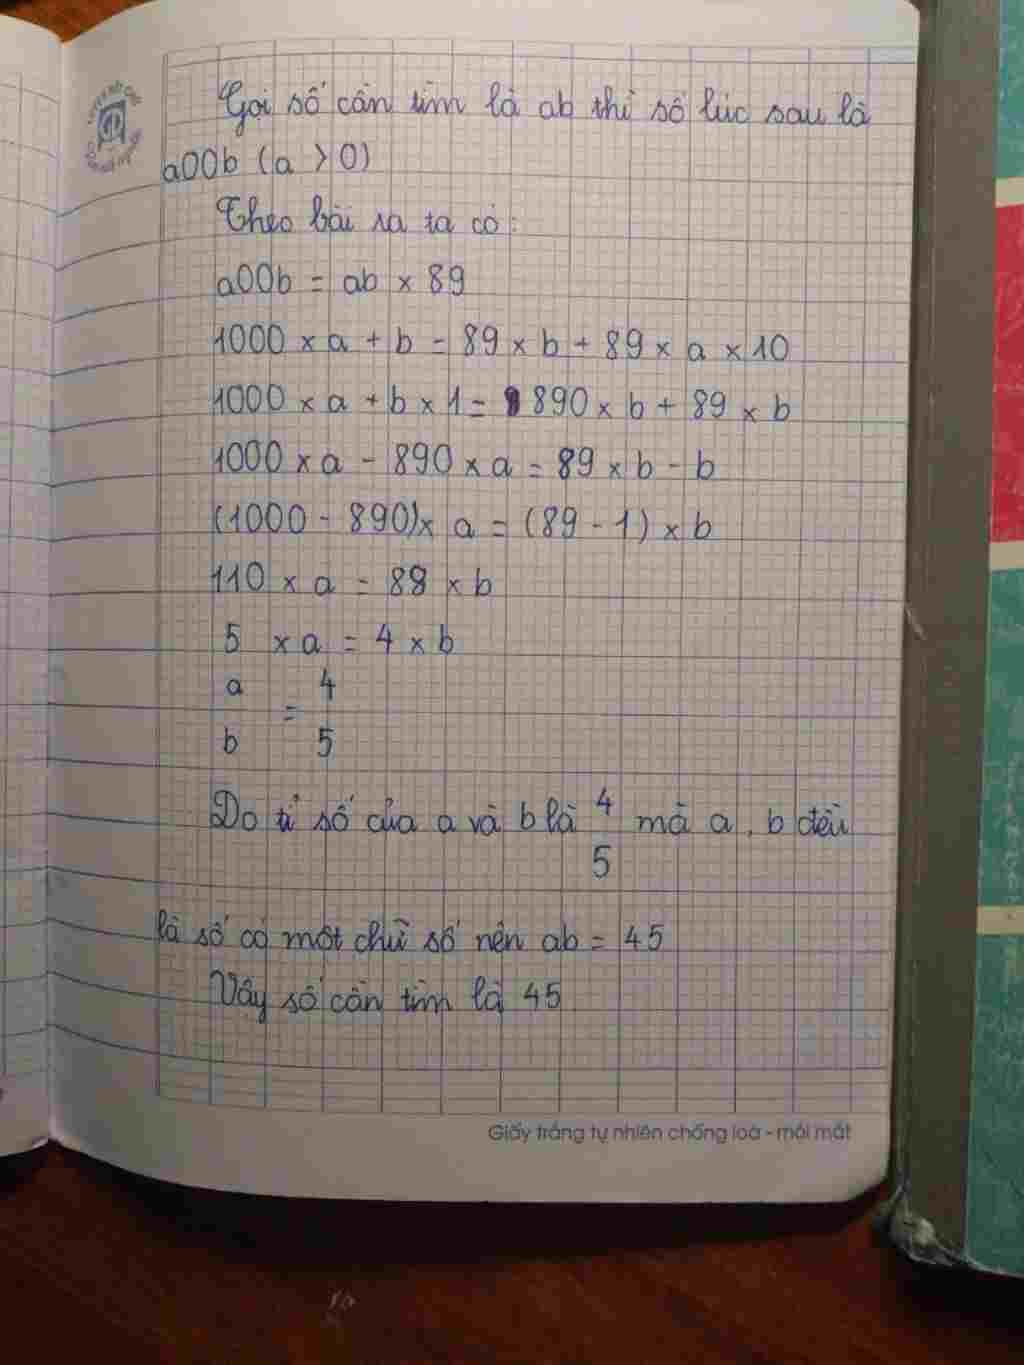 Gọi số cần tìm là ab thì số lúc sau là
a00b (a > 0)
Theo bài ra ta có:
a00b = ab × 89
1000 × a + b = 89 × b + 89 × a × 10
1000 × a + b × 1 = 890 × b + 89 × b
1000 × a - 890 × a = 89 × b - b
(1000 - 890) × a = (89 - 1) × b
110 × a = 88 × b
5 × a = 4 × b
a/b = 4/5
Do tỉ số của a và b là 4/5 mà a, b đều
là số có một chữ số nên ab = 45
Vậy số cần tìm là 45
Giấy trắng tự nhiên chống loá - mỏi mắt